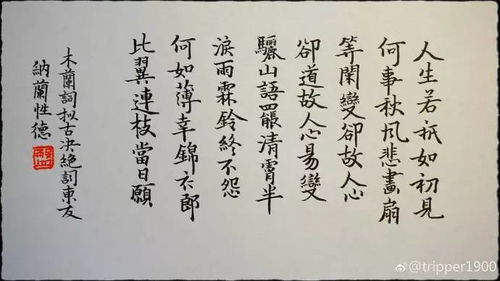 人生若祇如初見
何事秋风悲畫扇
等閑變卻故人心
卻道故人心易變
驪山語罷清霄半
淚雨霖鈴終不怨
何如薄幸錦衣郎
比翼連枝當日願
木蘭詞拟古决絕詞東友
納蘭性德
@tripper1900